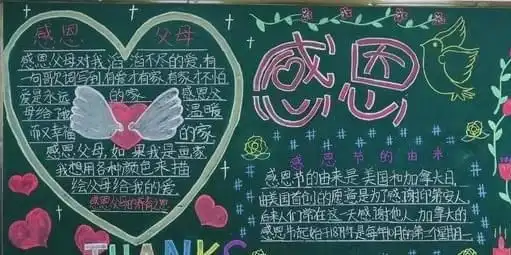 感恩 父母
感恩父母对我滔滔不尽的爱,有
一句歌词写到有爱才有家,有家才不怕
爱是永远 的家 感恩父
母给了 温暖
而又幸福 的家
感恩父母,如果我是画家
我想用各种颜色来描
绘父母给我的爱
感恩父母的养育之恩
THANKS
感恩
感恩节的由来
感恩节的由来是美国和加拿大日,
由美国首创的原意是为了感谢印第安人
后来人们常在这一天感谢他人,加拿大的
感恩节起始于1879年是每年10月的第一星期一